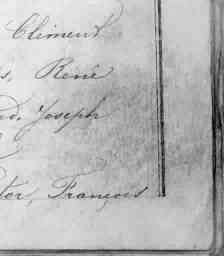 Climent
s, René
d. Joseph
tor, François